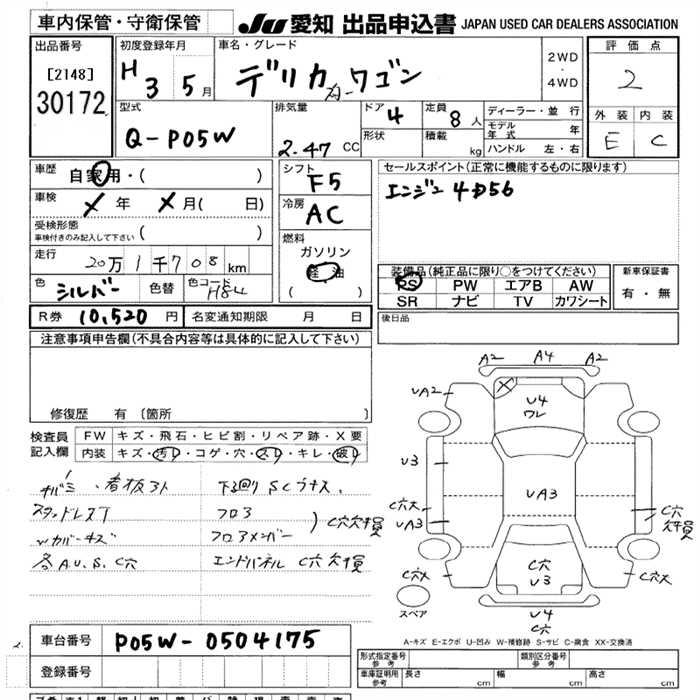 車内保管・守衛保管
JU 愛知 出品申込書 JAPAN USED CAR DEALERS ASSOCIATION
出品番号
[2148]
30172
初度登録年月
H 3 5月
車名・グレード
デリカ ワゴン
2WD
・
4WD
評価点
2
外装 内装
E C
型式
Q-P05W
排気量
2.47 CC
ドア 4
形状
定員 8人
積載 kg
ディーラー・並行
モデル年式 年
ハンドル 左・右
車歴
自家用・( )
車検 年 月( 日)
受検形態
車検付きのみ記入して下さい ( )
走行
20万1千708km
色 シルバー 色替 色コード H84
シフト
F5
冷房
AC
燃料
ガソリン
軽油
( )
セールスポイント(正常に機能するものに限ります)
エンジン 4D56
装備品(純正品に限り○をつけてください)
PS PW エアB AW
SR ナビ TV カワシート
新車保証書
有・無
R券 10,520円 名変通知期限 月 日
後日品
注意事項申告欄(不具合内容等は具体的に記入して下さい)
修復歴 有〔箇所 〕
検査員記入欄
FW キズ・飛石・ヒビ割・リペア跡・X要
内装 キズ・汚れ・コゲ・穴・スレ・キレ・破れ
看板アト 下回り
フロア
フロアメンバー C穴欠損
各A.U.S. C穴 エンドパネル C穴欠損
A2 A4 A2
UA2
U4
ワレ
U3
UA3
C穴大
UA3
C穴
欠損
C穴大
C穴
U3
C穴大
U4
C穴
スペア
A-キズ E-エクボ U-凹み W-補修跡 S-サビ C-腐食 XX-交換済
車台番号 P05W-0504175
登録番号
形式指定番号
参考
類別区分番号
参考
車庫証明用
参考
長さ cm 幅 cm 高さ cm